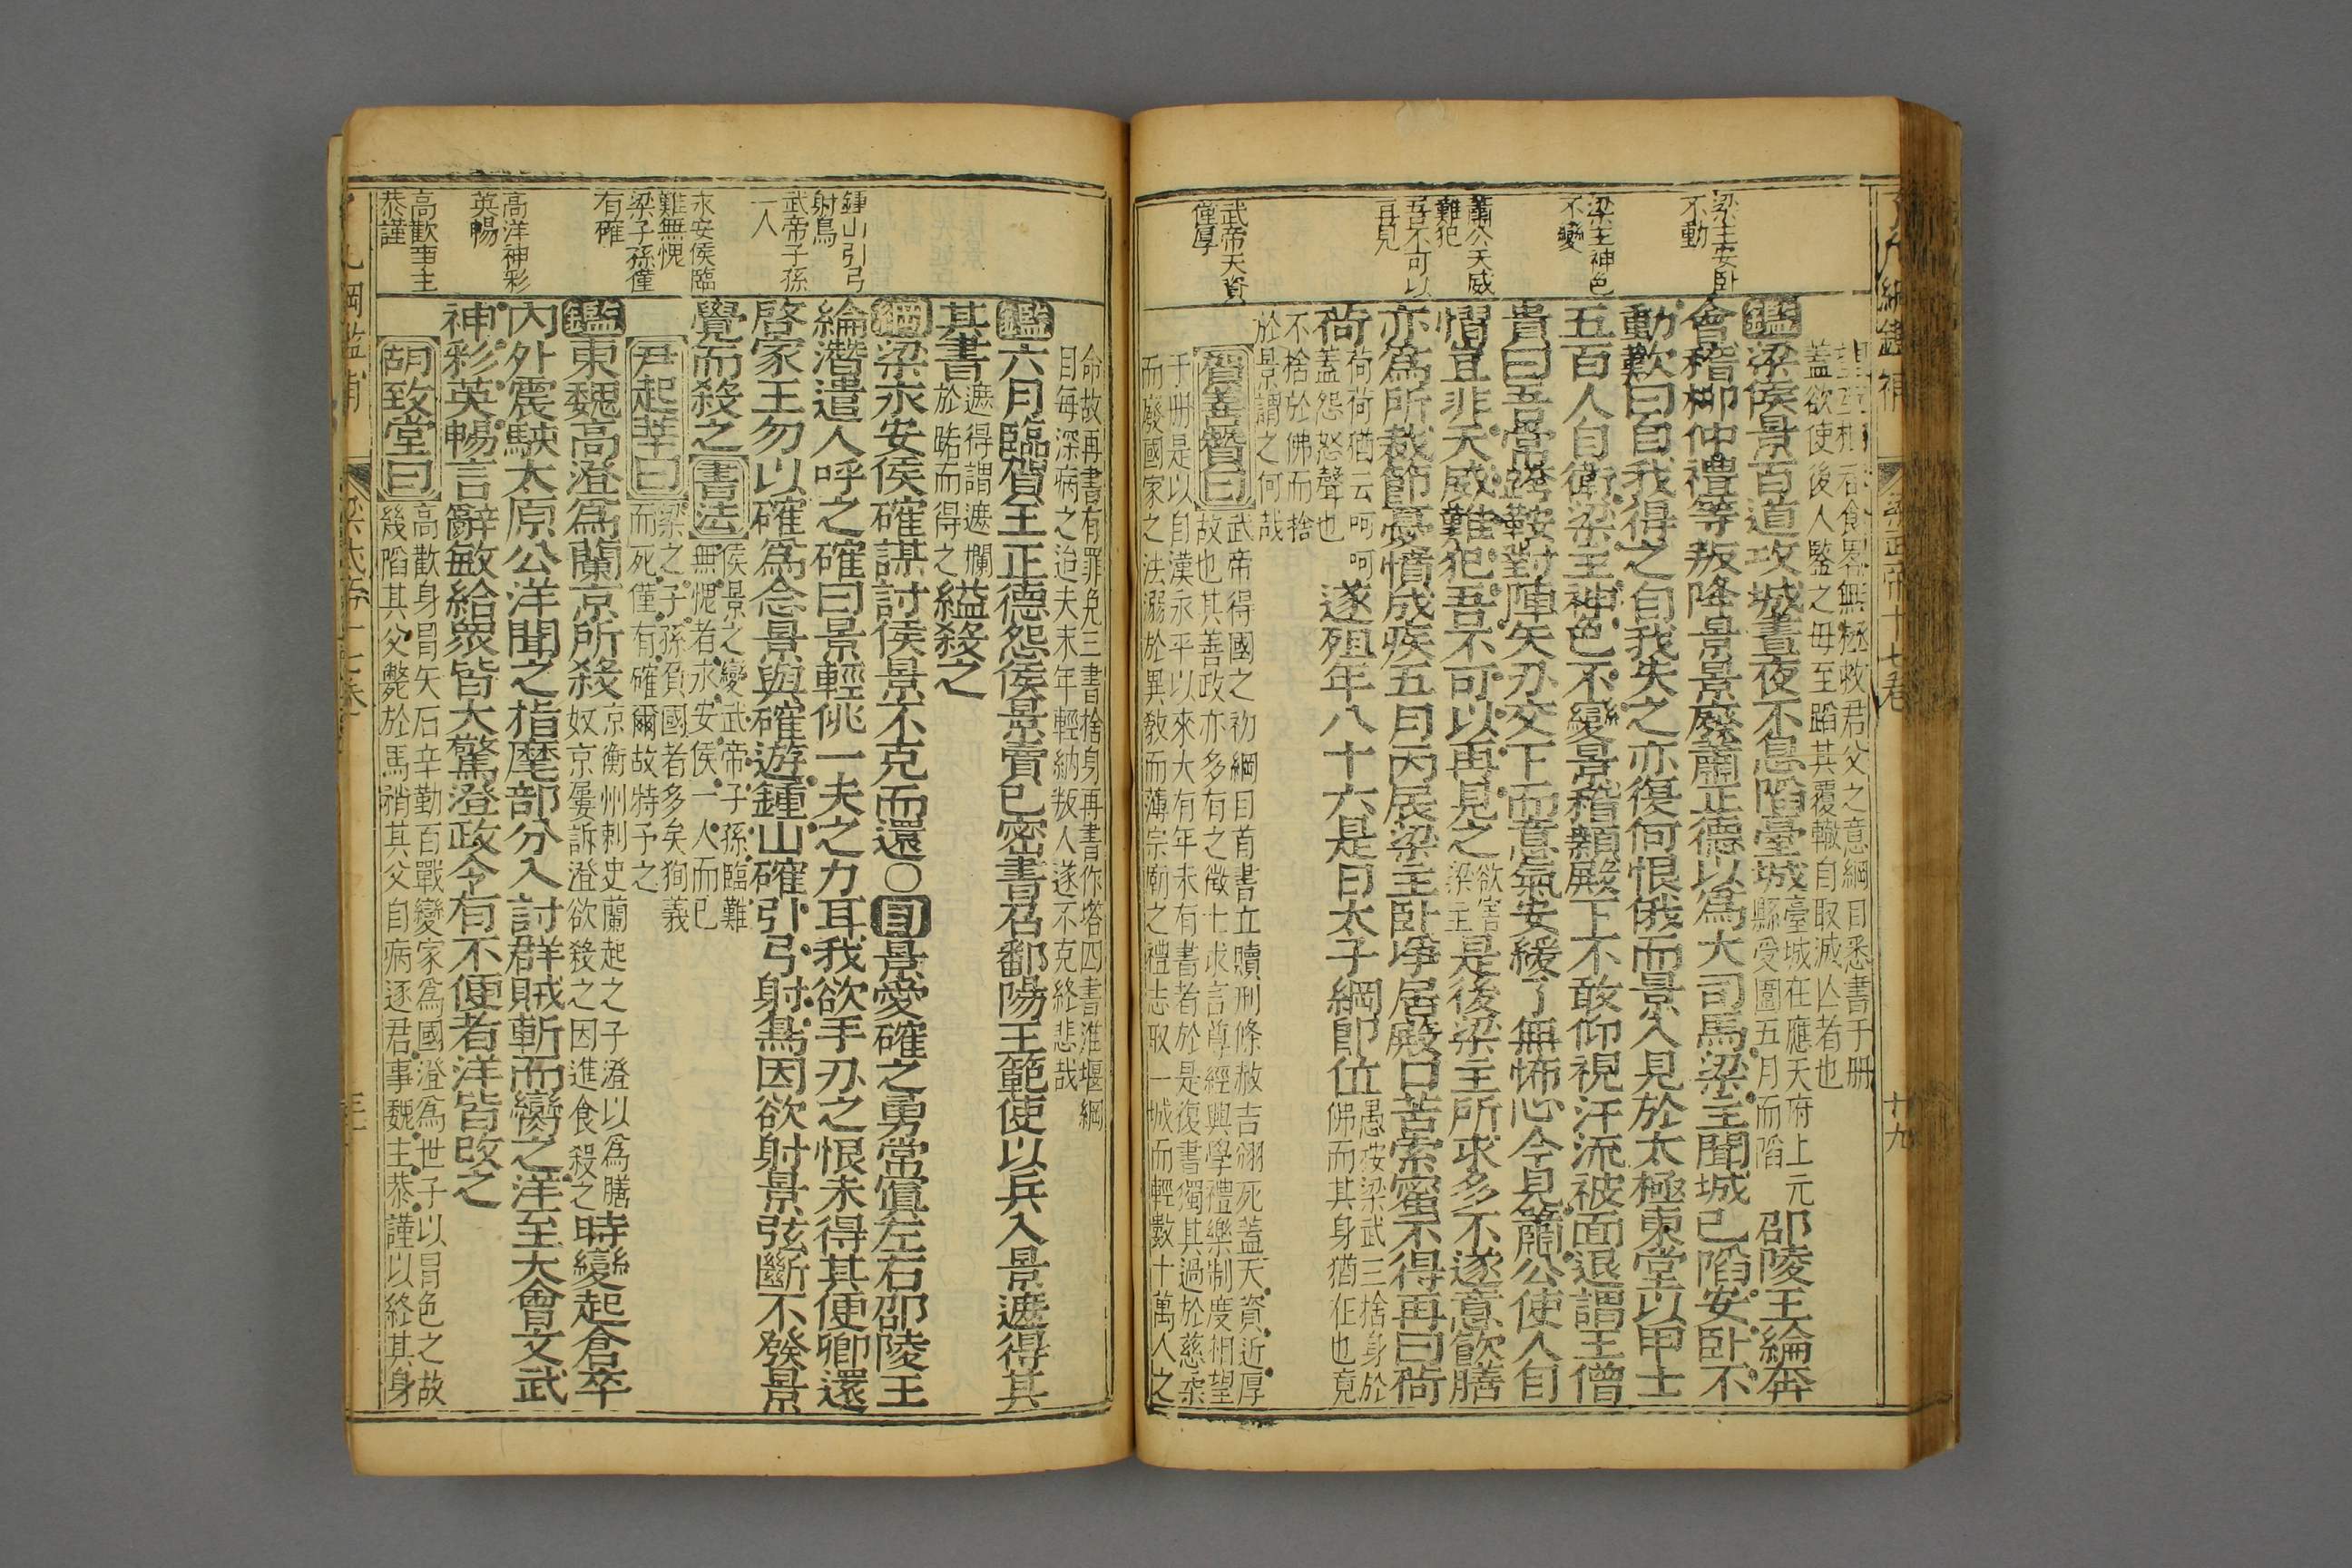 梁主安卧
不動
梁主神色
不變
蕭公天威
難犯
吾不可以
再見
武帝天資
僅厚
望至相吞食畧無極救君父之意綱目悉書于册
蓋欲使後人監之毋至蹈其覆轍自取滅亾者也
鑑梁侯景百道攻城晝夜不息陷臺城
臺城在應天府上元
縣受圍五月而陷
邵陵王綸奔
會稽柳仲禮等叛降景景廢蕭正德以爲大司馬梁主聞城已陷安卧不
動歎曰自我得之自我失之亦復何恨俄而景入見於太極東堂以甲士
五百人自衛梁主神色不變景稽顙殿下不敢仰視汗流被面退謂王僧
貴曰吾常跨鞍對陣矢刃交下而意氣安緩了無怖心今見蕭公使人自
慴豈非天威難犯吾不可以再見之
欲害
梁主
是後梁主所求多不遂意飮膳
亦爲所裁節憂憤成疾五月丙辰梁主卧淨居殿口苦索蜜不得再曰荷
荷
荷荷猶云呵呵
蓋怨怒聲也
遂殂年八十六是日太子綱卽位
愚按梁武三捨身於
佛而其身猶在也竟
不捨於佛而捨
於景謂之何哉
賀善贊曰
武帝得國之初綱目首書立贖刑條赦吉翂死蓋天資近厚
故也其善政亦多有之徵士求言尊經興學禮樂制度相望
于册是以自漢永平以來大有年未有書者於是復書獨其過於慈柔
而廢國家之法溺於異教而薄宗廟之禮志取一城而輕數十萬人之
廿九
命故再書有罪免三書捨身再書作塔四書淮堰綱
目每深病之迨夫末年輕納叛人遂不克終悲哉
鑑六月臨賀王正德怨侯景賣已密書召鄱陽王範使以兵入景遮得其
其書
遮得謂遮攔
於路而得之
縊殺之
綱梁永安侯確謀討侯景不克而還○目景愛確之勇常寘左右邵陵王
綸潛遣人呼之確曰景輕佻一夫之力耳我欲手刃之恨未得其便卿還
啓家王勿以確爲念景與確遊鍾山確引弓射鳥因欲射景弦斷不發景
覺而殺之
書法
侯景之變武帝子孫臨難
無愧者永安侯一人而已
尹起莘曰
梁之子孫負國者多矣狥義
而死僅有確爾故特予之
鑑東魏高澄爲蘭京所殺
京衡州刺史蘭起之子澄以爲膳
奴京屢訴澄欲殺之因進食殺之
時變起倉卒
內外震駭太原公洋聞之指麾部分入討群賊斬而臠之洋至大會文武
神彩英暢言辭敏給衆皆大驚澄政令有不便者洋皆改之
胡致堂曰
高歡身冒矢石辛勤百戰變家爲國澄爲世子以冒色之故
幾陷其父斃於馬矟其父自病逐君事魏主恭謹以終其身
鍾山引弓
射鳥
武帝子孫
一人
永安侯臨
難無愧
梁子孫僅
有確
高洋神彩
英暢
高歡事主
恭謹